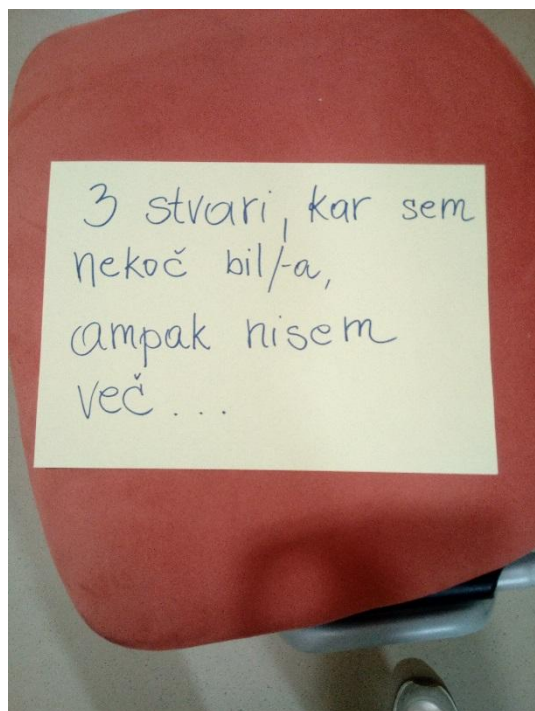 3 stvari, kar sem
nekoč bil/-a,
ampak nisem
več...